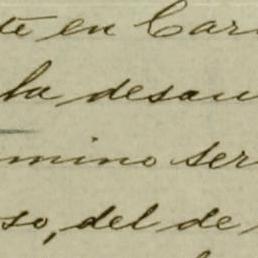 te en Car
la desau
mino ser
so, del de